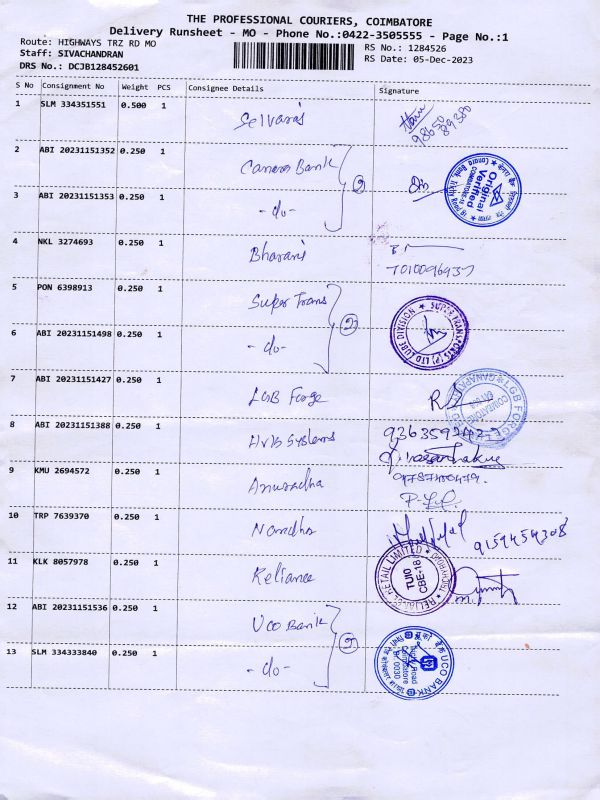 THE PROFESSIONAL COURIERS, COIMBATORE
Delivery Runsheet - MO - Phone No.:0422-3505555 - Page No.:1
Route: HIGHWAYS TRZ RD MO
RS No.: 1284526
Staff: SIVACHANDRAN
RS Date: 05-Dec-2023
DRS No.: DCJB128452601
S No Consignment No Weight PCS Consignee Details Signature
1 SLM 334351551 0.500 1 Selvaraj
98650
89380
2 ABI 20231151352 0.250 1 Canara Bank
Original
Verified
3 ABI 20231151353 0.250 1 -do-
2
4 NKL 3274693 0.250 1 Bharani
7010096937
5 PON 6398913 0.250 1 Super Trans
6 ABI 20231151498 0.250 1 -do-
2
SUPER TRANSPORTS (P) LTD LUBE DIVISION
7 ABI 20231151427 0.250 1 LGB Forge
LGB FORGE
8 ABI 20231151388 0.250 1 Systems
9 KMU 2694572 0.250 1 Anuradha
10 TRP 7639370 0.250 1
9159454308
11 KLK 8057978 0.250 1 Reliance
TUIO
CBE-18
12 ABI 20231151536 0.250 1 Uco Bank
13 SLM 334333840 0.250 1 -do-
2
UCO BANK